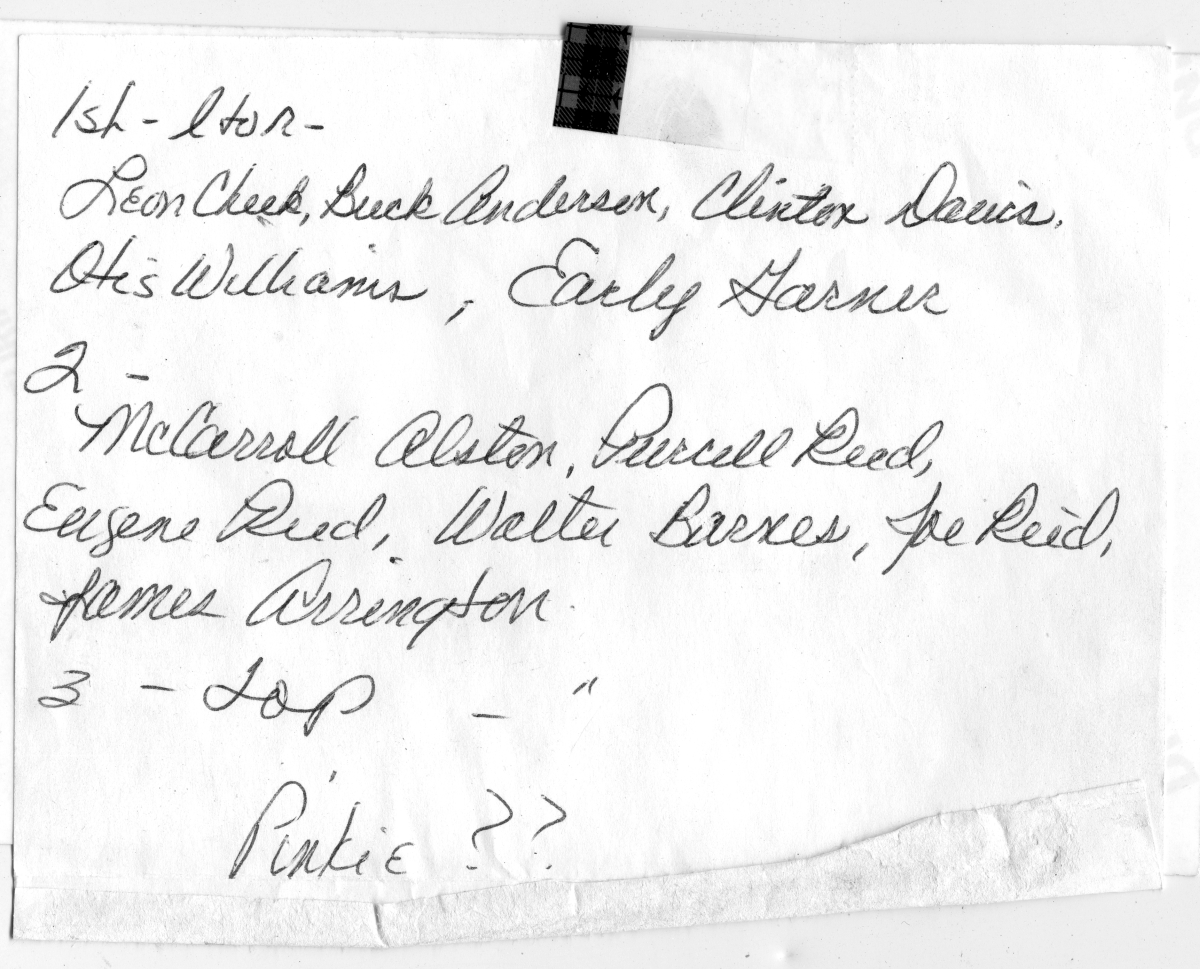 1st - l to r -
Leon Cheek, Buck Anderson, Clinton Davis,
Otis Williams, Early Garner
2 -
McCarroll Alston, Purcell Reed,
Eugene Reed, Walter Barnes, Joe Reid,
James Arrington
3 - Top - "
Pinkie ??